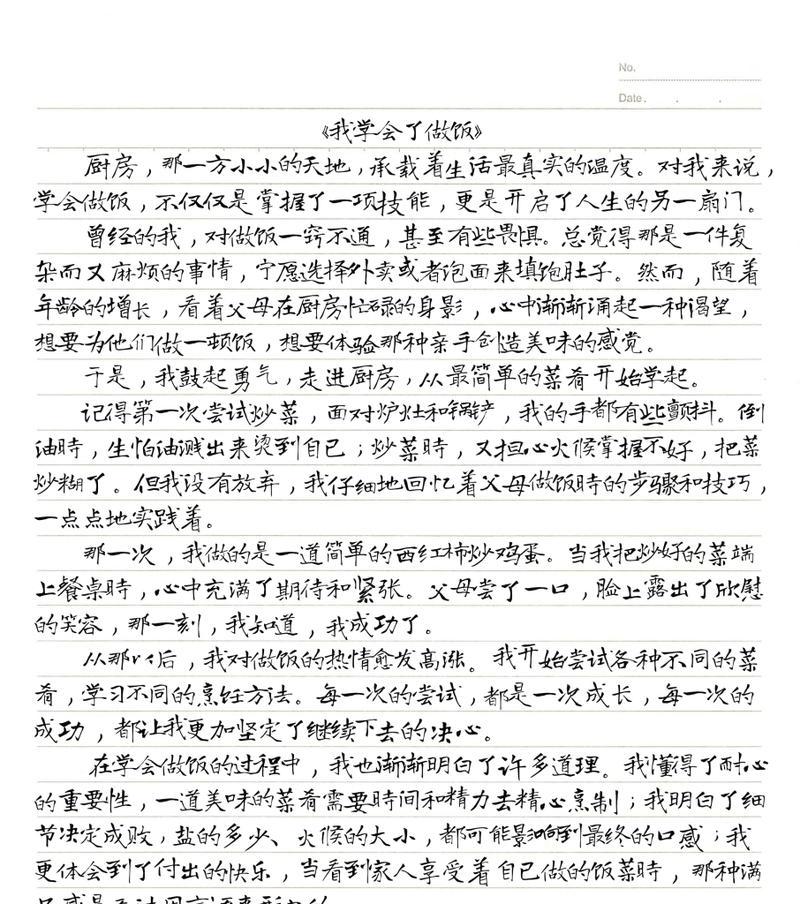 No.
Date . . .
《我学会了做饭》
厨房，那一方小小的天地，承载着生活最真实的温度。对我来说，
学会做饭，不仅仅是掌握了一项技能，更是开启了人生的另一扇门。
曾经的我，对做饭一窍不通，甚至有些畏惧。总觉得那是一件复
杂而又麻烦的事情，宁愿选择外卖或者泡面来填饱肚子。然而，随着
年龄的增长，看着父母在厨房忙碌的身影，心中渐渐涌起一种渴望，
想要为他们做一顿饭，想要体验那种亲手创造美味的感觉。
于是，我鼓起勇气，走进厨房，从最简单的菜肴开始学起。
记得第一次尝试炒菜，面对炉灶和锅铲，我的手都有些颤抖。倒
油時，生怕油溅出来烫到自己；炒菜時，又担心火候掌握不好，把菜
炒糊了。但我没有放弃，我仔细地回忆着父母做饭時的步骤和技巧，
一点点地实践着。
那一次，我做的是一道简单的西红柿炒鸡蛋。当我把炒好的菜端
上餐桌時，心中充满了期待和紧张。父母尝了一口，脸上露出了欣慰
的笑容，那一刻，我知道，我成功了。
从那以后，我对做饭的热情愈发高涨。我开始尝试各种不同的菜
肴，学习不同的烹饪方法。每一次的尝试，都是一次成长，每一次的
成功，都让我更加坚定了继续下去的决心。
在学会做饭的过程中，我也渐渐明白了许多道理。我懂得了耐心
的重要性，一道美味的菜肴需要時间和精力去精心烹制；我明白了细
节决定成败，盐的多少、火候的大小，都可能影响到最终的口感；我
更体会到了付出的快乐，当看到家人享受着自己做的饭菜時，那种满